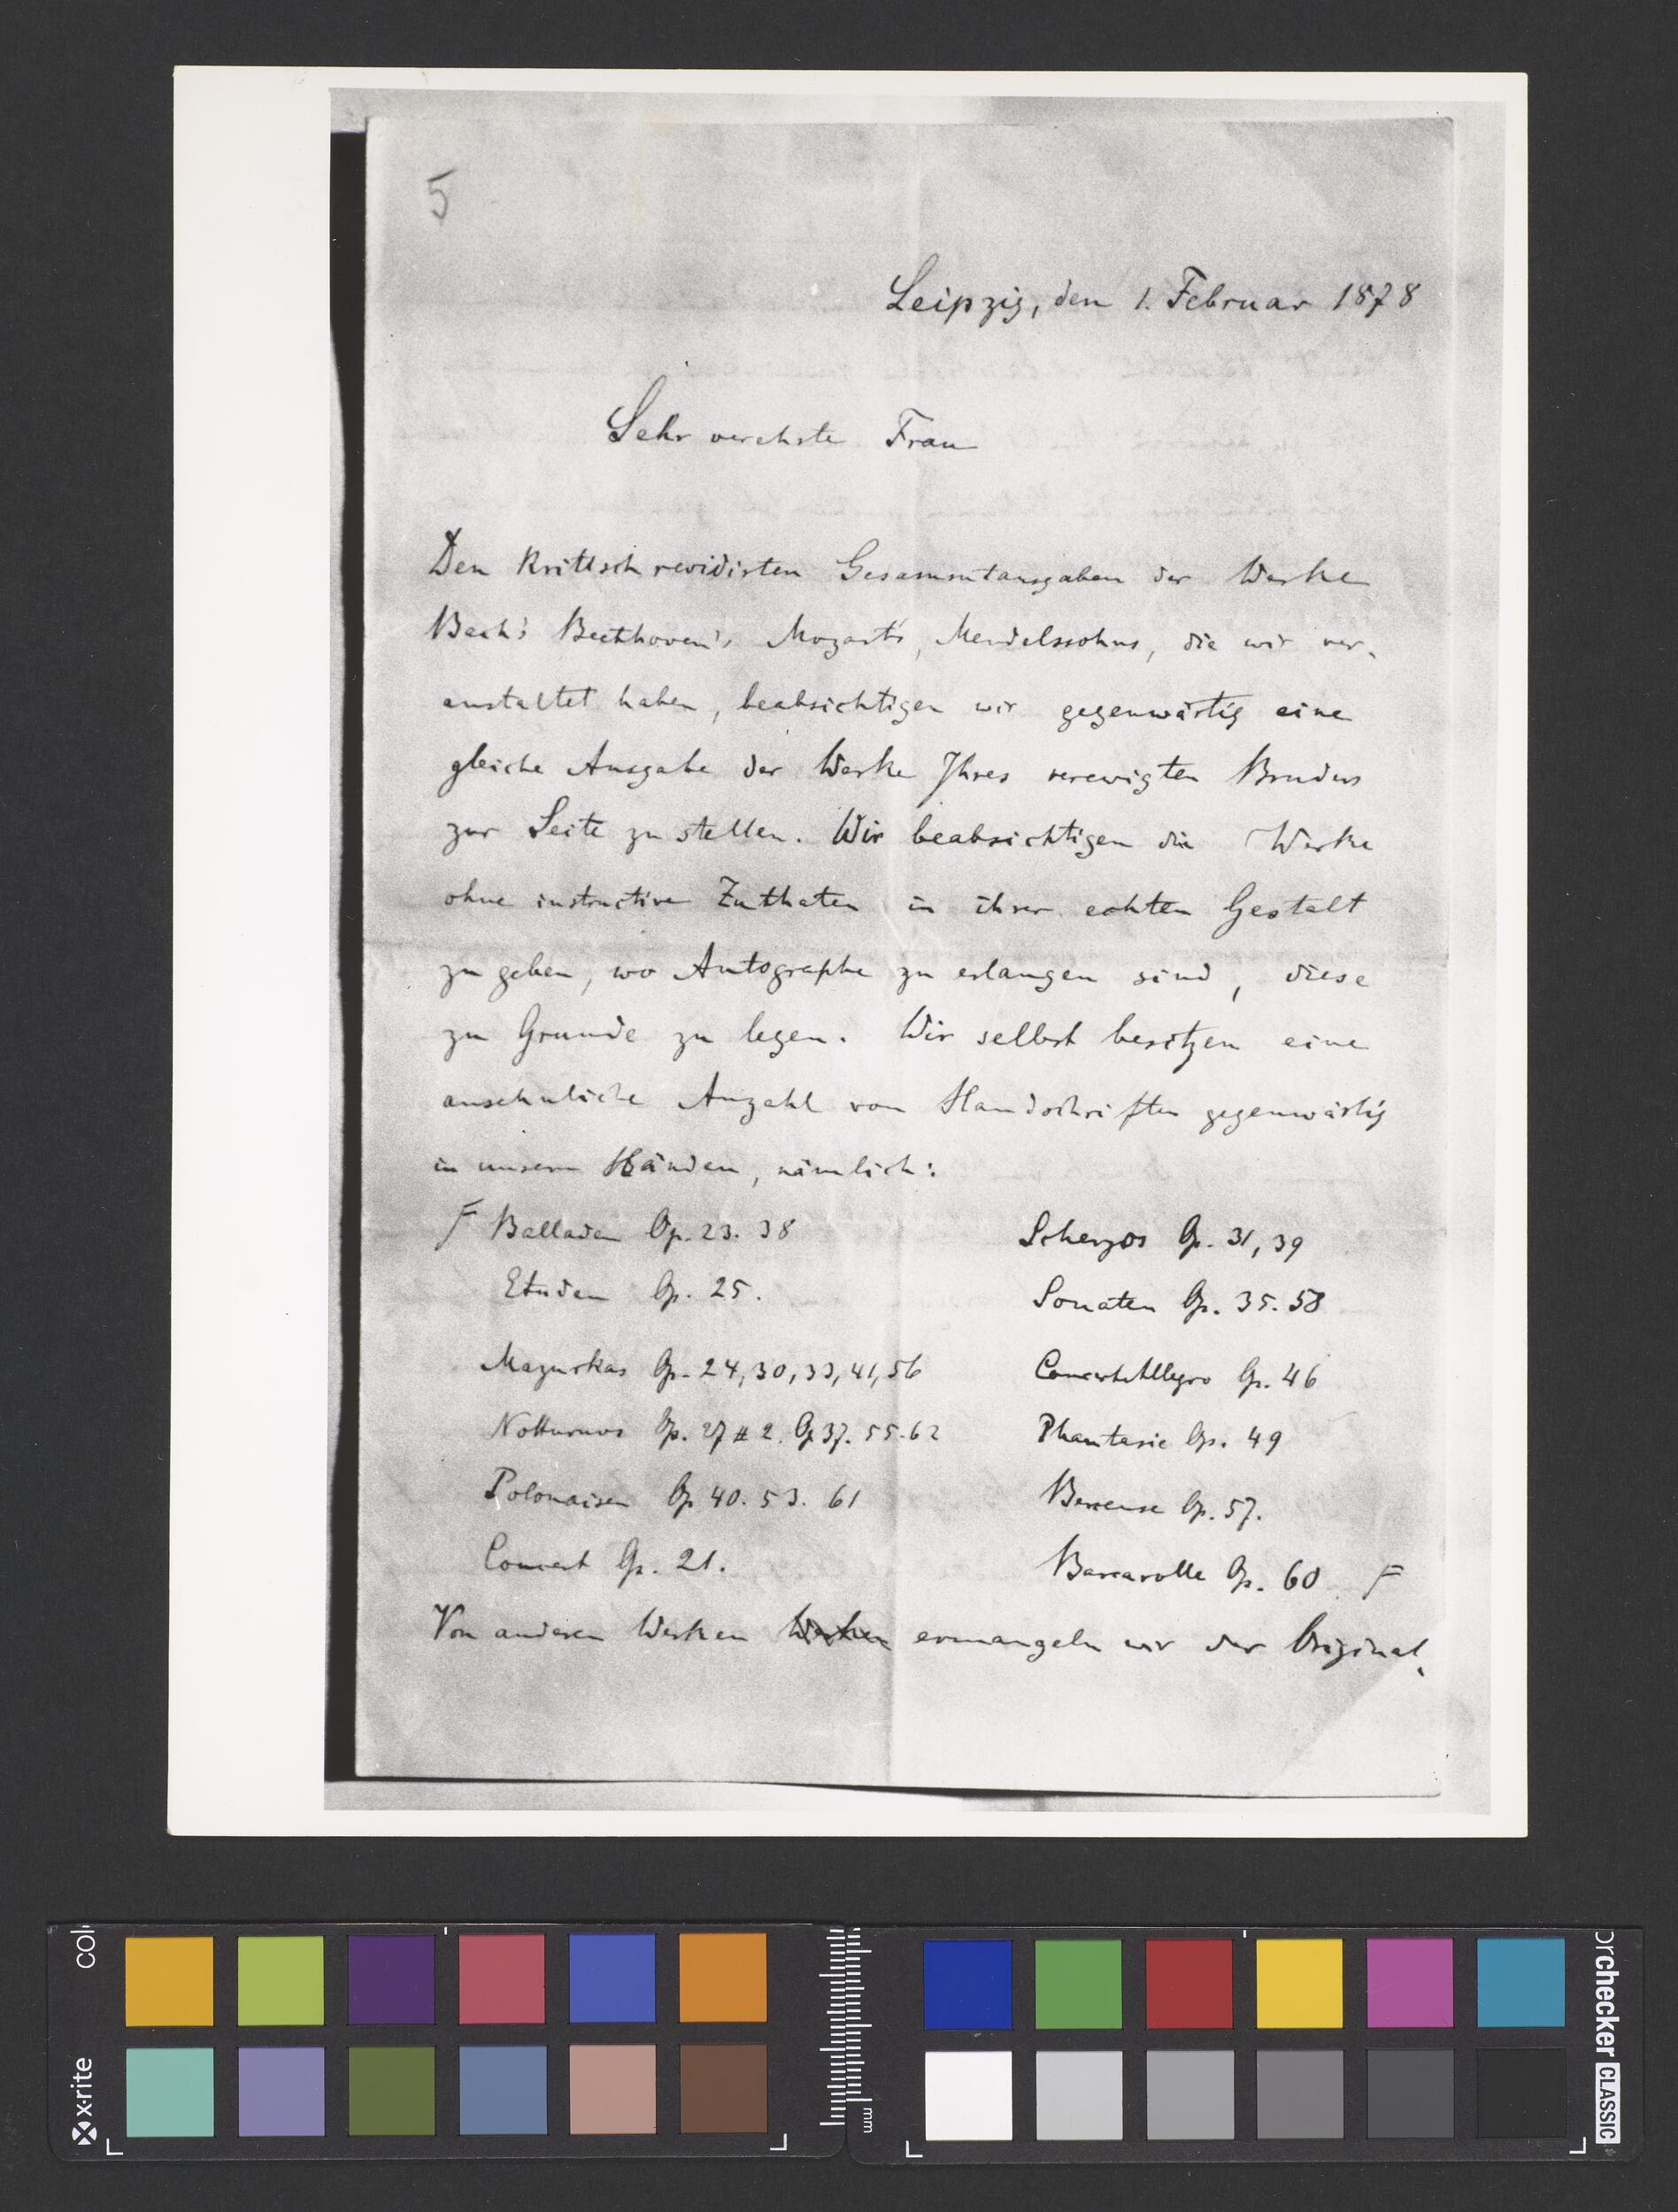 5
Leipzig, den 1. Februar 1878
Sehr verehrte Frau
Den kritisch revidirten Gesammtausgaben der Werke
Bach's Beethoven's, Mozart's, Mendelssohns, die wir ver-
anstaltet haben, beabsichtigen wir gegenwärtig eine
gleiche Ausgabe der Werke Ihres verewigten Bruders
zur Seite zu stellen. Wir beabsichtigen die Werke
ohne instructive Zuthaten in ihrer echten Gestalt
zu geben, wo Autographe zu erlangen sind, diese
zu Grunde zu legen. Wir selbst besitzen eine
ansehnliche Anzahl von Handschriften gegenwärtig
in unsern Händen, nämlich:
F Balladen Op. 23. 38
Etuden Op. 25.
Mazurkas Op. 24, 30, 33, 41, 56
Notturnos Op. 27 # 2. Op 37. 55. 62
Polonaisen Op 40. 53. 61
Concert Op. 21.
Scherzos Op. 31, 39
Sonaten Op. 35. 58
ConcertAllegro Op. 46
Phantasie Op. 49
Berceuse Op. 57.
Barcarolle Op. 60 F
Von anderen Werken Werken ermangeln wir der Original-
col
x-rite
mm
orchecker CLASSIC